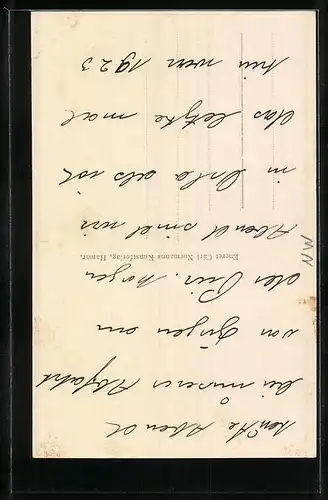 heute Abend
bei unserer Abfahrt
von am
Morgen
Abend sind wir
in als ich
das letzte mal
hier war 1923
Eneret Carl Normanns Kunstforlag, Hamar.